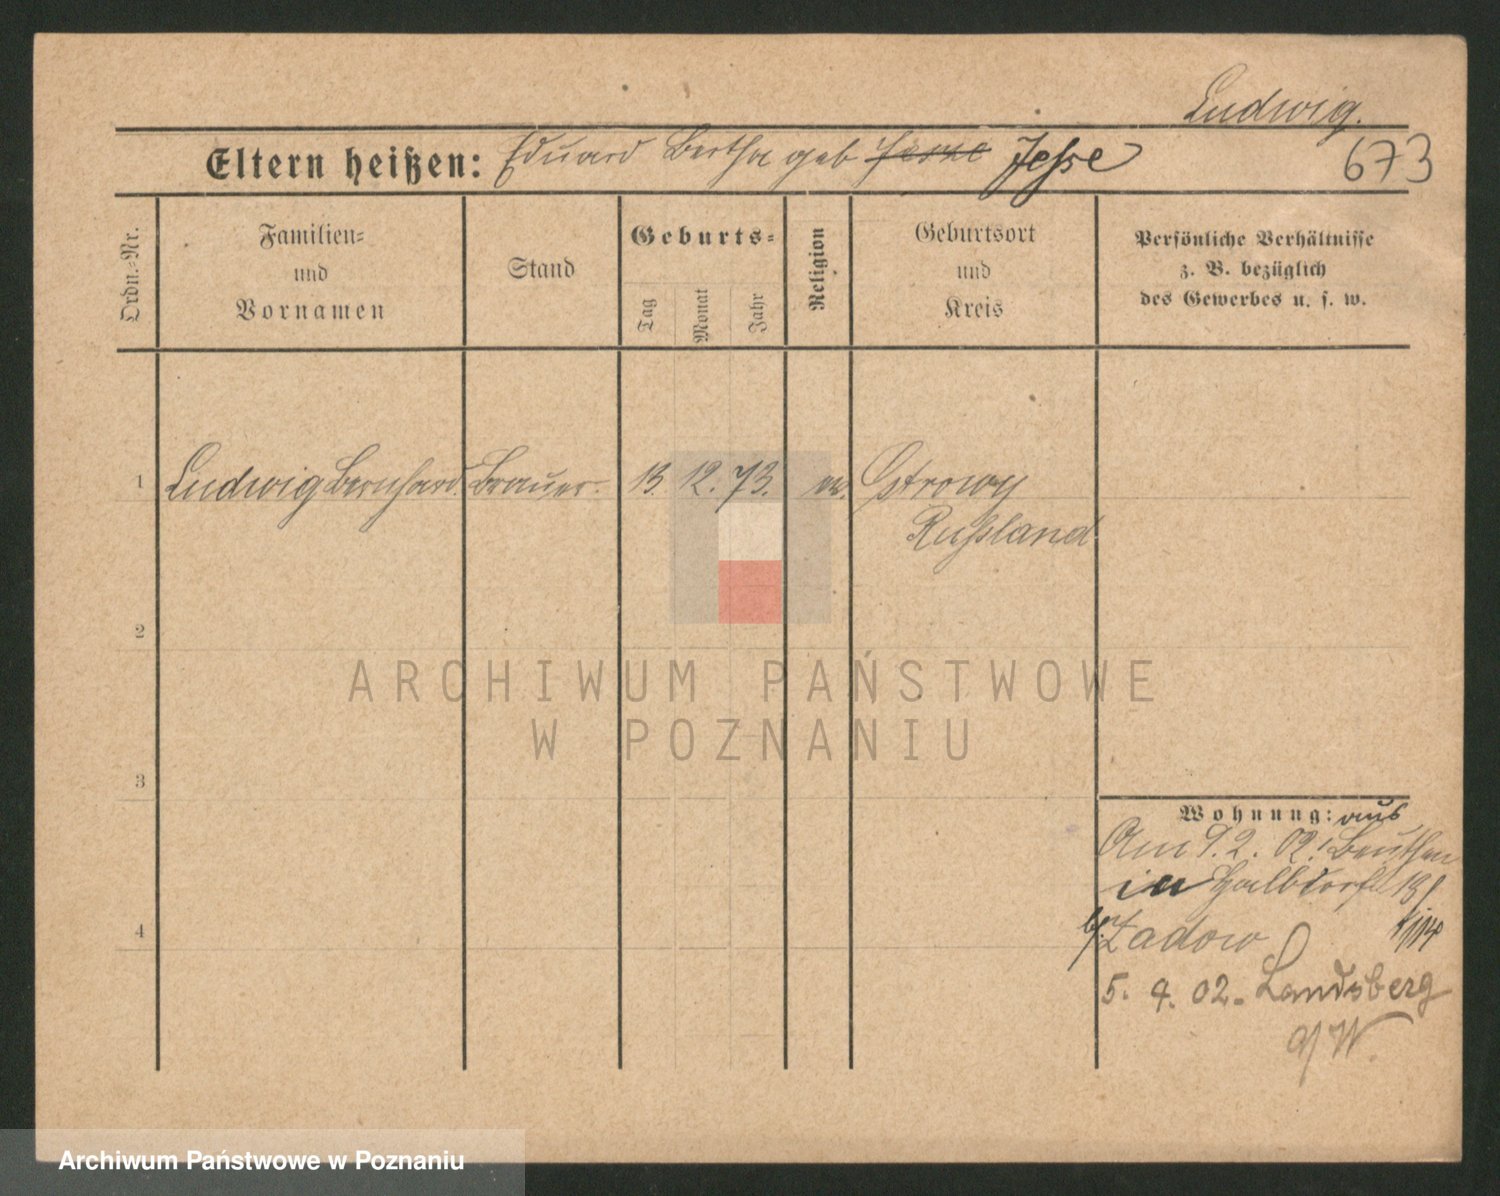 Ludwig.
Eltern heißen: Eduard Bertha geb Jesse Jeßse
673
Ordn.-Nr.
Familien-
und
Vornamen
Stand
Geburts-
Tag
Monat
Jahr
Religion
Geburtsort
und
Kreis
Persönliche Verhältnisse
z. B. bezüglich
des Gewerbes u. s. w.
1 Ludwig Bernhard. Brauer. 13. 12. 73. Ostrowy
Rußland
2
ARCHIWUM PAŃSTWOWE
W POZNANIU
3
Wohnung: aus
Am 9.2. 02. Beuthen
in Halbdorfstr
4
b/. Zadow
5. 4. 02. Landsberg
a/W
Archiwum Państwowe w Poznaniu